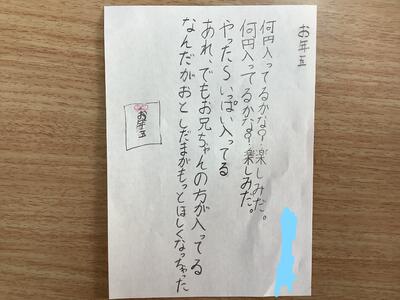 お年玉
何円入ってるかな?楽しみだ。
何円入ってるかな?楽しみだ。
やった〜いっぱい入ってる
あれ、でもお兄ちゃんの方が入ってる
なんだがおとしだまがもっとほしくなっちゃった
お年玉